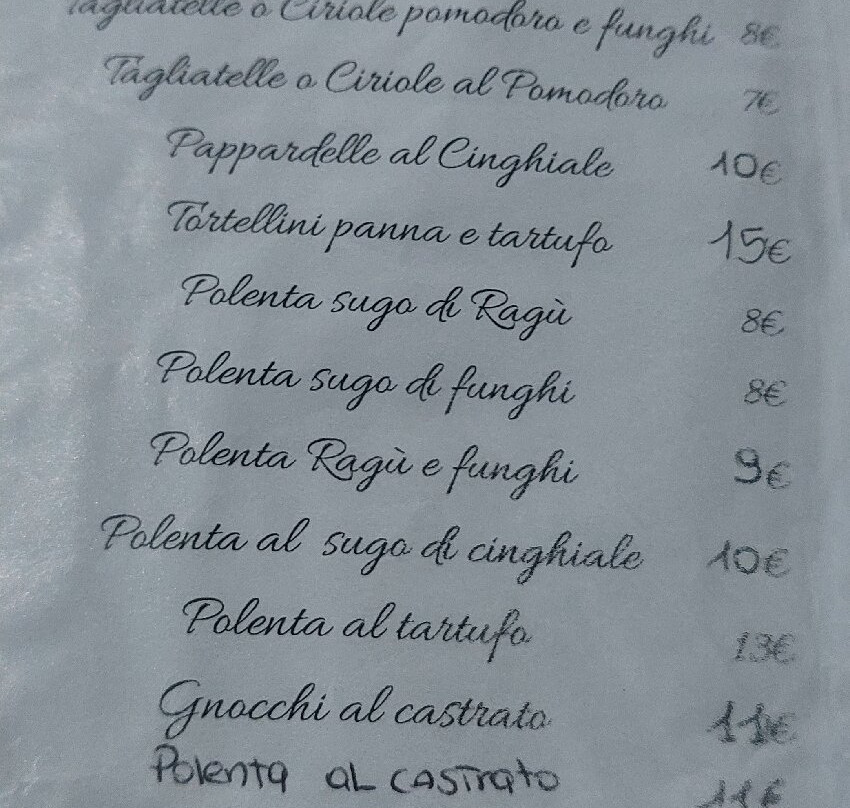 Tagliatelle o Ciriole pomodoro e funghi 8€
Tagliatelle o Ciriole al Pomodoro 7€
Pappardelle al Cinghiale 10€
Tortellini panna e tartufo 15€
Polenta sugo di Ragù 8€
Polenta sugo di funghi 8€
Polenta Ragù e funghi 9€
Polenta al sugo di cinghiale 10€
Polenta al tartufo 13€
Gnocchi al castrato 11€
Polenta AL CASTRATO 11€